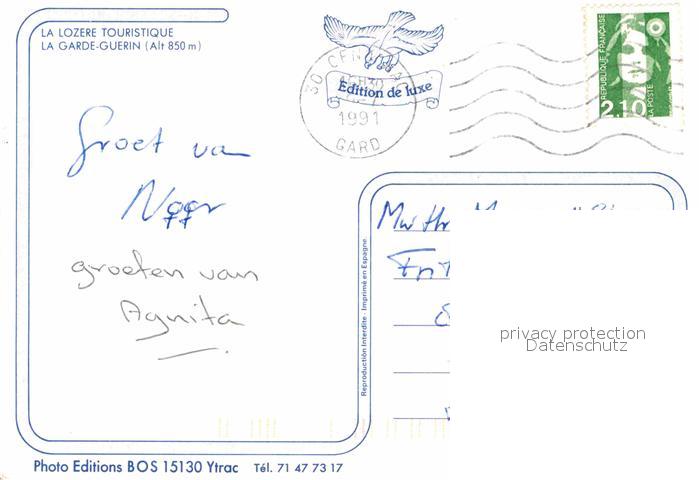 LA LOZERE TOURISTIQUE
LA GARDE-GUERIN (Alt 850 m)
Edition de luxe
30
1991
GARD
REPUBLIQUE FRANÇAISE
2,10
LA POSTE
Groet van
groeten van
Agnita
Reproduction Interdite - Imprimé en Espagne
privacy protection
Datenschutz
Photo Editions BOS 15130 Ytrac Tél. 71 47 73 17